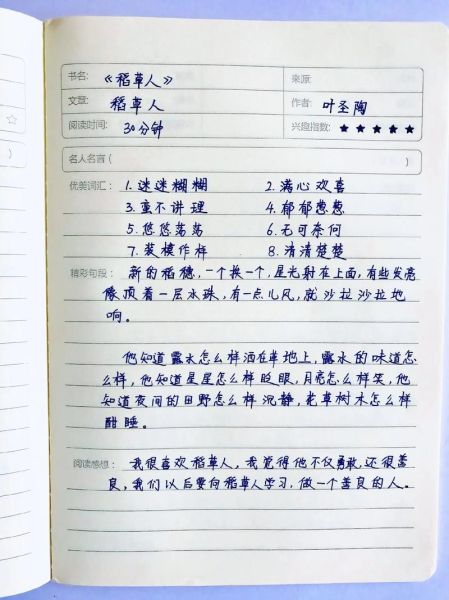 书名: 《稻草人》 来源:
文章: 稻草人 作者: 叶圣陶
阅读时间: 30分钟 兴趣指数: ★★★★★
名人名言( )
优美词汇: 1.迷迷糊糊 2.满心欢喜
3.蛮不讲理 4.郁郁葱葱
5.悠悠荡荡 6.无可奈何
7.装模作样 8.清清楚楚
精彩句段: 新的稻穗,一个挨一个,星光射在上面,有些发亮
像顶着一层水珠,有一点儿风,就沙拉沙拉地
响。
他知道露水怎么样洒在草地上,露水的味道怎
么样,他知道星星怎么样眨眼,月亮怎么样笑,他
知道夜间的田野怎么样沉静,花草树木怎么样
酣睡。
阅读感想: 我很喜欢稻草人,我觉得他不仅勇敢,还很善
良,我们以后要向稻草人学习,做一个善良的人。